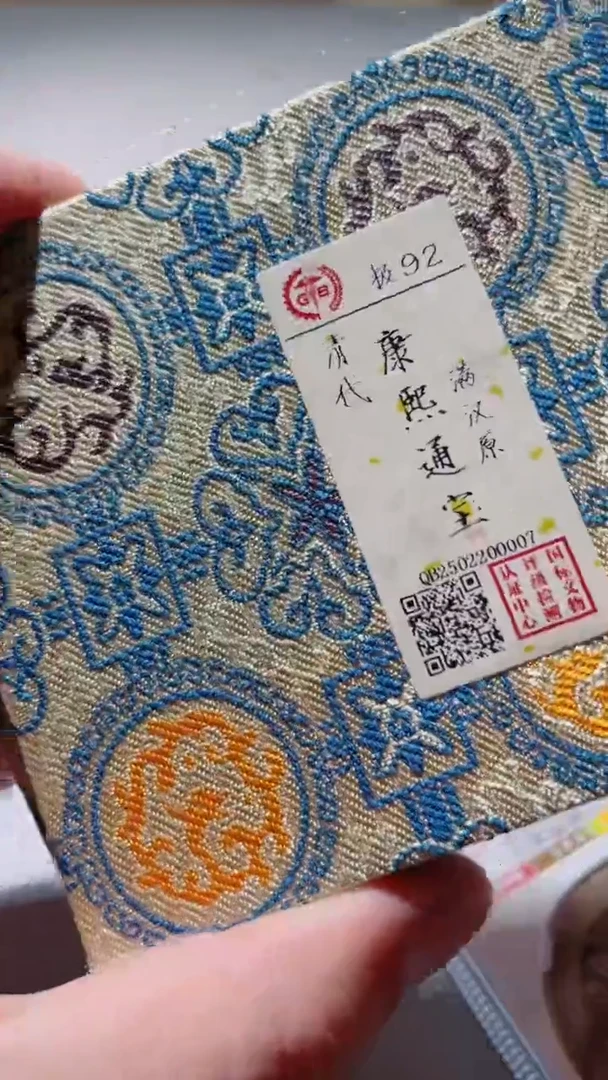 GB
极92
清代
康熙通宝
满汉原
QB2502200007
国标文物
评级检测
认证中心